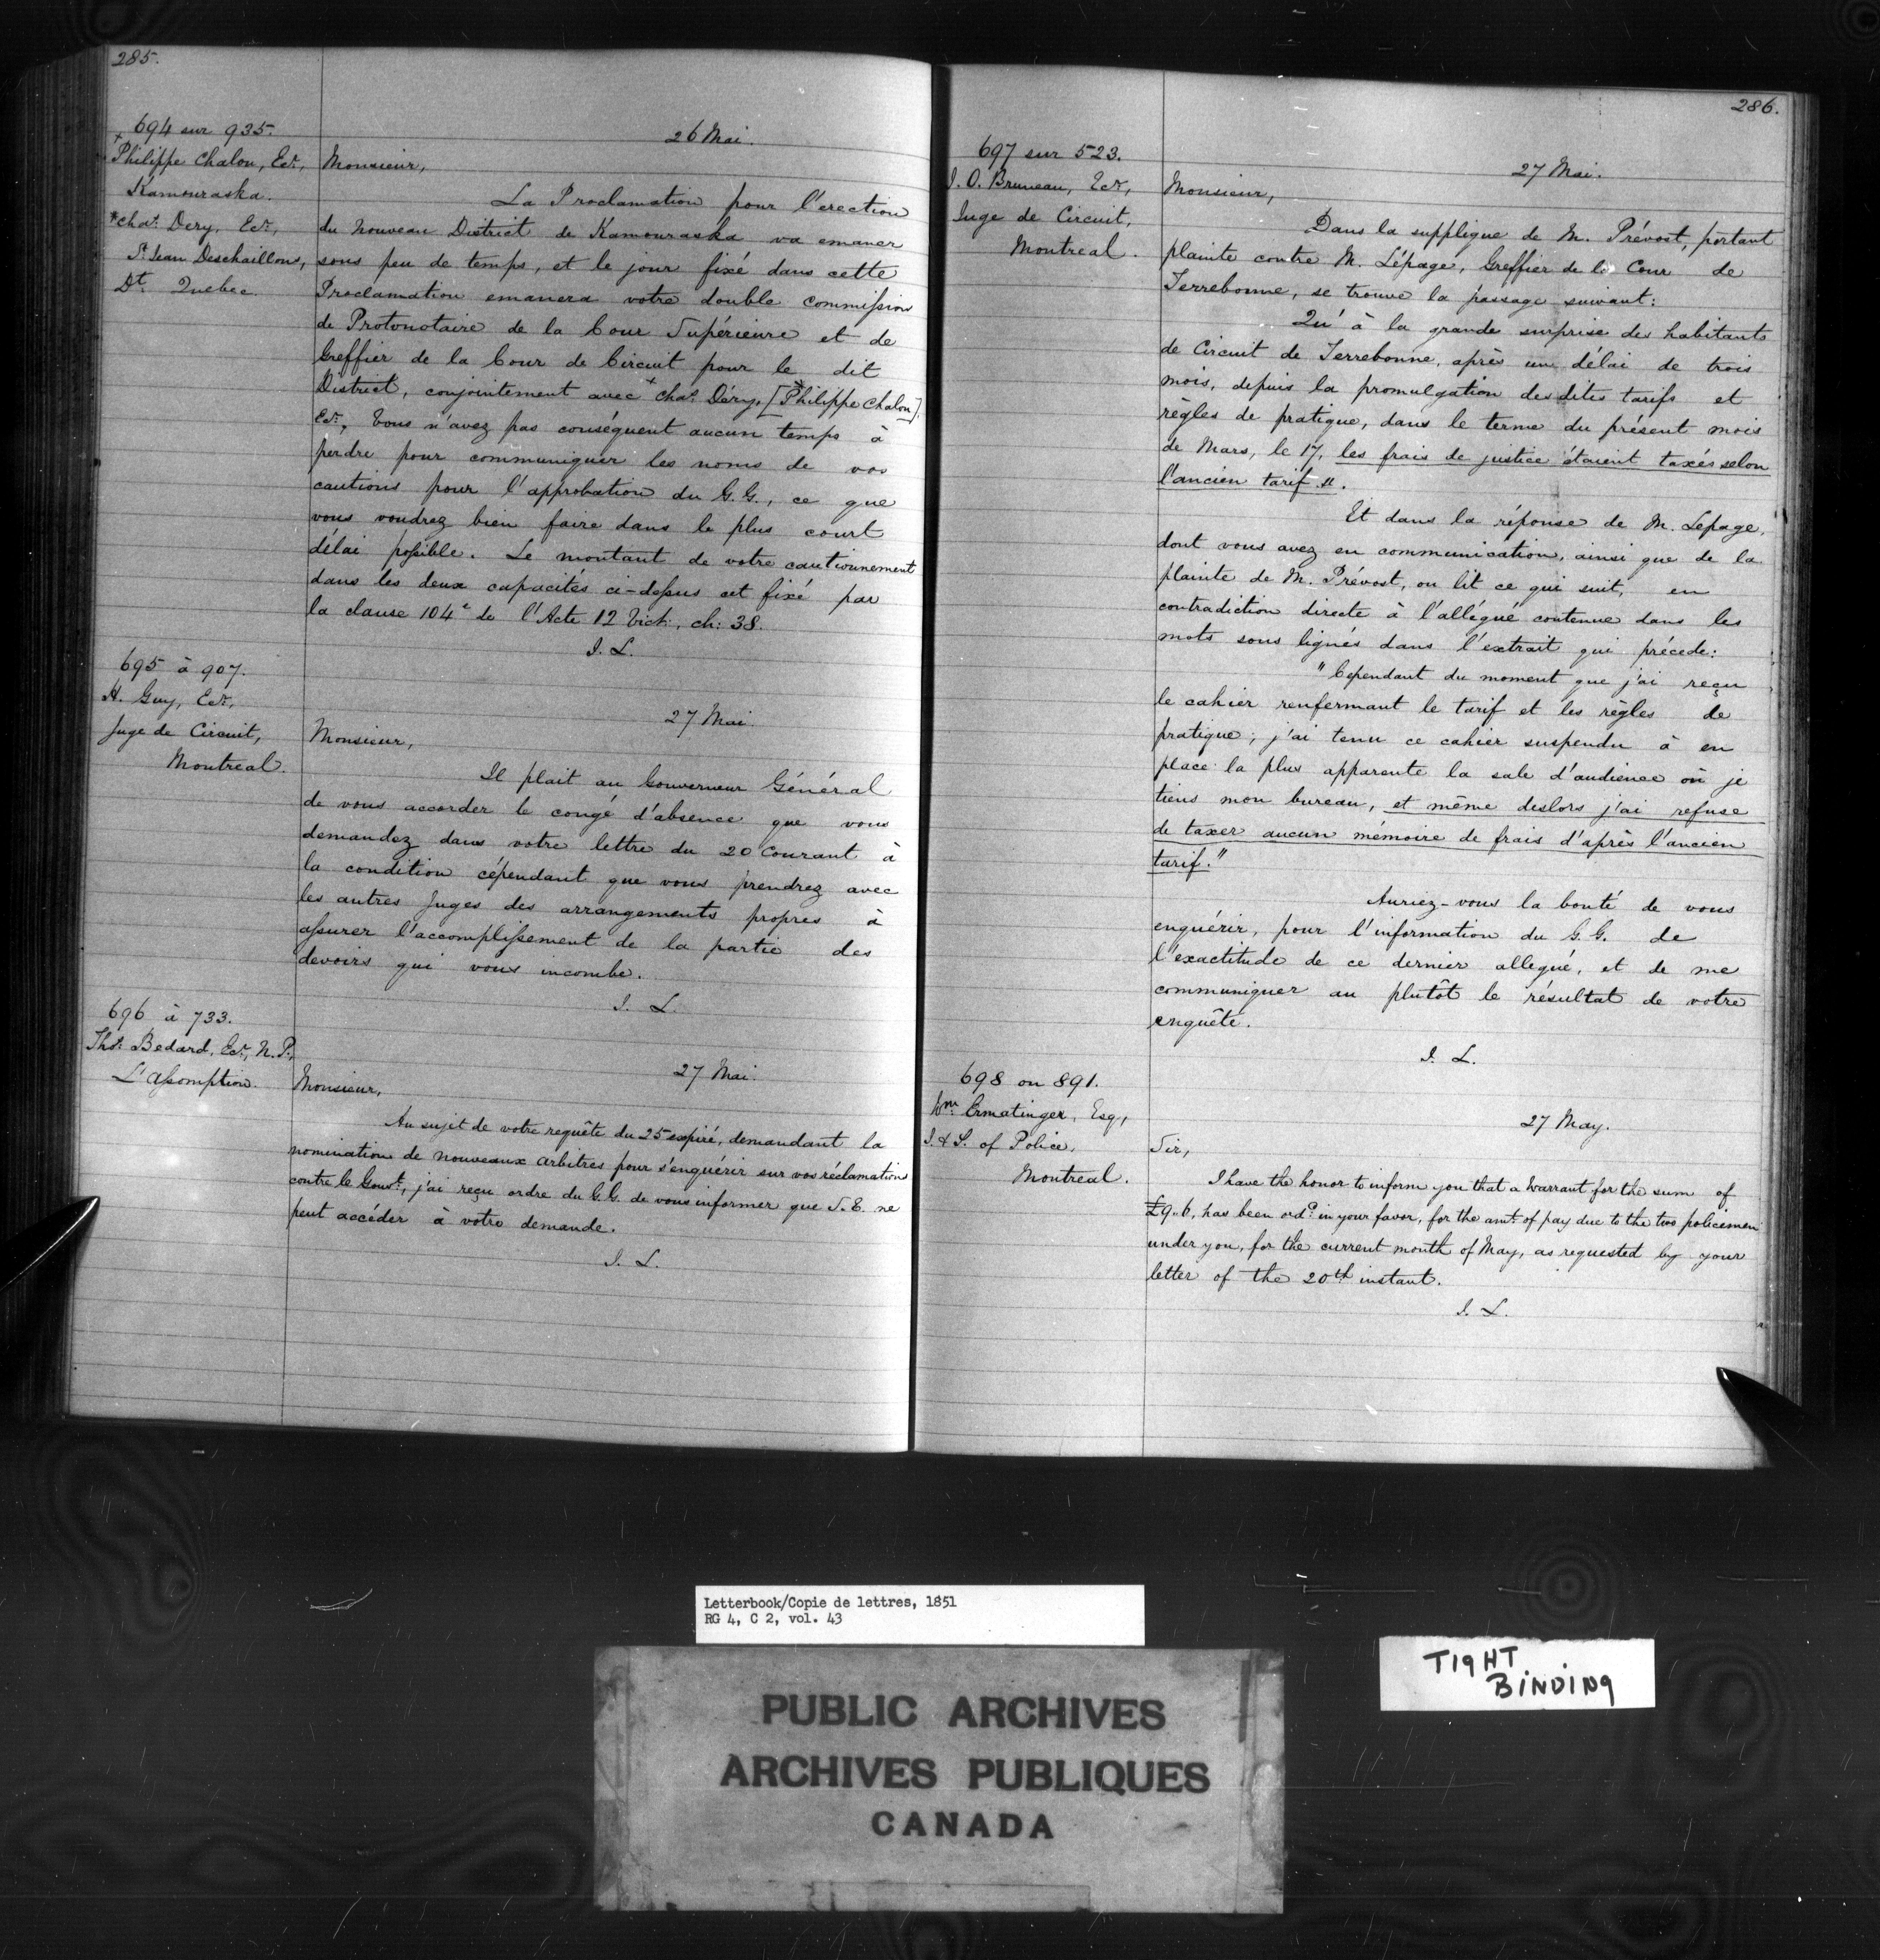 285.
694 sur 935.
+Philippe Chalou, Ecr.,
Kamouraska.
*Chas. Dery, Ecr.,
St. Jean Deschaillons,
Dt. Quebec.
26 Mai.
Monsieur,
La Proclamation pour l'erection
du Nouveau District de Kamouraska va emaner
sous peu de temps, et le jour fixé dans cette
Proclamation emanera votre double commission
de Protonotaire de la Cour Supérieure et de
Greffier de la Cour de Circuit pour le dit
District, conjointement avec + Chas. Déry, [*Philippe Chalou],
Ecr. Vous n'avez pas conséquent aucun temps à
perdre pour communiquer les noms de vos
cautions pour l'approbation du G.G., ce que
vous voudrez bien faire dans le plus court
délai possible. Le montant de votre cautionnement
dans les deux capacités ci-dessus est fixé par
la clause 104e de l'Acte 12 Vict., ch: 38.
J. L.
695 à 907.
H. Guy, Ecr.,
Juge de Circuit,
Montreal.
27 Mai.
Monsieur,
Il plait au Gouverneur Général
de vous accorder le congé d'absence que vous
demandez dans votre lettre du 20 Courant à
la condition cépendant que vous prendrez avec
les autres Juges des arrangements propres à
assurer l'accomplissement de la partie des
devoirs qui vous incombe.
J. L.
696 à 733.
Thos. Bedard, Ecr., N.P.,
L'assomption.
27 Mai.
Monsieur,
Au sujet de votre requête du 25 expiré, demandant la
nomination de nouveaux arbitres pour s'enquérir sur vos réclamations
contre le Gouvt., j'ai reçu ordre du G.G. de vous informer que S.E. ne
peut accéder à votre demande.
J. L.
286.
697 sur 523.
J. O. Bruneau, Ecr,
Juge de Circuit,
Montreal.
27 Mai.
Monsieur,
Dans la supplique de M. Prévost, portant
plainte contre M. Lépage, Greffier de la Cour de
Terrebonne, se trouve la passage suivant:
Qu'à la grande surprise des habitants
de Circuit de Terrebonne, après un délai de trois
mois, depuis la promulgation desdites tarifs et
règles de pratique, dans le terme du présent mois
de Mars, le 17, les frais de justice étaient taxés selon
l'ancien tarif.".
Et dans la réponse de M. Lepage,
dont vous avez en communication, ainsi que de la
plainte de M. Prévost, on lit ce qui suit, en
contradiction directe à l'allégué contenue dans les
mots sous lignés dans l'extrait qui précede:
"Cependant du moment que j'ai reçu
le cahier renfermant le tarif et les règles de
pratique; j'ai tenu ce cahier suspendu à en
place la plus apparente la sale d'audience où je
tiens mon bureau, et même deslors j'ai refuse
de taxer aucun mémoire de frais d'après l'ancien
tarif."
Auriez-vous la bonté de vous
enquérir, pour l'information du G.G. de
l'exactitude de ce dernier allegué, et de me
communiquer au plutôt le résultat de votre
enquête.
J. L.
698 on 891.
Wm. Ermatinger, Esq,
I. & S. of Police,
Montreal.
27 May.
Sir,
I have the honor to inform you that a Warrant for the sum of
£9..6, has been ordd. in your favor, for the amt. of pay due to the two policemen
under you, for the current month of May, as requested by your
letter of the 20th instant.
J. L.
Letterbook/Copie de lettres, 1851
RG 4, C 2, vol. 43
TIGHT
BINDING
PUBLIC ARCHIVES
ARCHIVES PUBLIQUES
CANADA